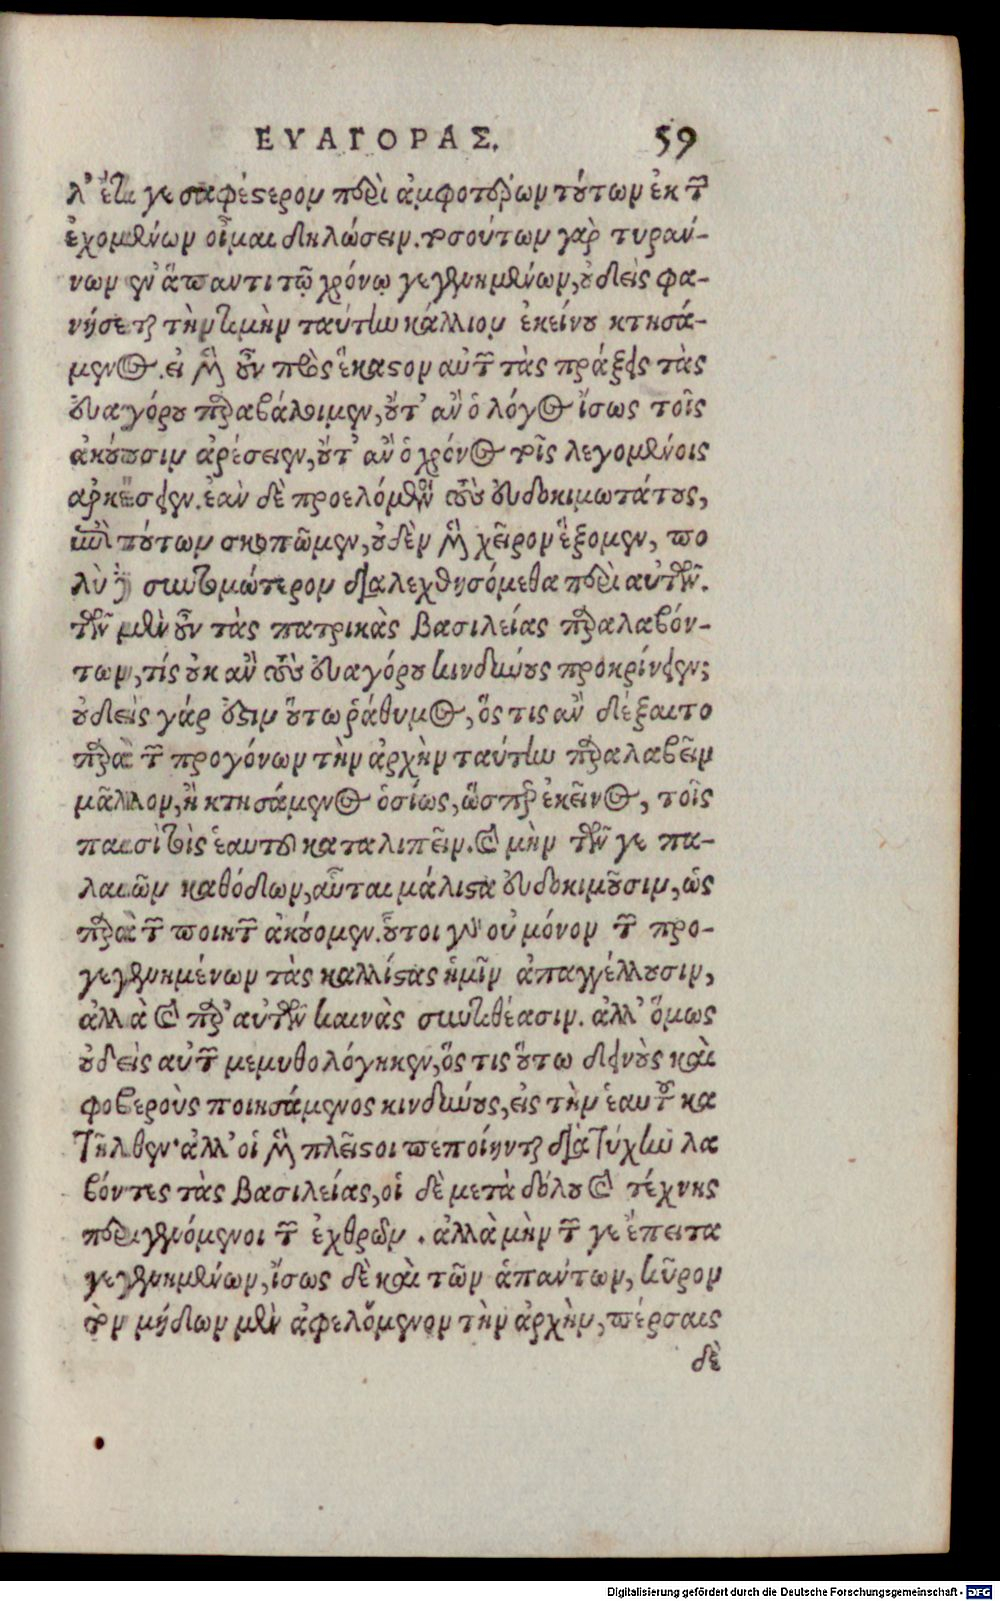 ΕΥΑΓΟΡΑΣ. 59
λ' ἔτι γε σαφέστερον περὶ ἀμφοτέρων τούτων ἐκ τῶν
ἐχομένων οἶμαι δηλώσειν. τοσούτων γὰρ τυράν-
νων ἐν ἅπαντι τῷ χρόνῳ γεγενημένων, οὐδεὶς φα-
νήσεται τὴν τιμὴν ταύτην κάλλιον ἐκείνου κτησά-
μενος. εἰ μὲν οὖν πρὸς ἕκαστον αὐτῶν τὰς πράξεις τὰς
εὐαγόρου παραβάλοιμεν, οὔτ' ἂν ὁ λόγος ἴσως τοῖς
ἀκούουσιν ἀρέσειεν, οὔτ' ἂν ὁ χρόνος τοῖς λεγομένοις
ἀρκέσειεν. ἐὰν δὲ προελόμενοι τοὺς εὐδοκιμωτάτους,
ἐπὶ τούτων σκοπῶμεν, οὐδὲν μὲν χεῖρον ἕξομεν, πο
λὺ δὲ συντομώτερον διαλεχθησόμεθα περὶ αὐτῶν.
τῶν μὲν οὖν τὰς πατρικὰς βασιλείας παραλαβόν-
των, τίς οὐκ ἂν τοὺς εὐαγόρου κινδύνους προκρίνειεν;
οὐδεὶς γάρ ἐστιν οὕτω ῥάθυμος, ὅς τις ἂν δέξαιτο
παρὰ τῶν προγόνων τὴν ἀρχὴν ταύτην παραλαβεῖν
μᾶλλον, ἢ κτησάμενος ὁσίως, ὥσπερ ἐκεῖνος, τοῖς
παισὶ τοῖς ἑαυτοῦ καταλιπεῖν. καὶ μὴν τῶν γε πα-
λαιῶν καθόδων, αὗται μάλιστα εὐδοκιμοῦσιν, ὡς
παρὰ τῶν ποιητῶν ἀκούομεν. οὗτοι γὰρ οὐ μόνον τῶν προ-
γεγενημένων τὰς καλλίστας ἡμῖν ἀπαγγέλλουσιν,
ἀλλὰ καὶ παρ' αὐτῶν καινὰς συντιθέασιν. ἀλλ' ὅμως
οὐδεὶς αὐτῶν μεμυθολόγηκεν, ὅς τις οὕτω δεινοὺς καὶ
φοβεροὺς ποιησάμενος κινδύνους, εἰς τὴν ἑαυτοῦ κα
τῆλθεν· ἀλλ' οἱ μὲν πλεῖστοι πεποίηνται διὰ τύχην λα
βόντες τὰς βασιλείας, οἱ δὲ μετὰ δόλου καὶ τέχνης
περιγενόμενοι τῶν ἐχθρῶν. ἀλλὰ μὴν τῶν γε ἔπειτα
γεγενημένων, ἴσως δὲ καὶ τῶν ἁπάντων, κῦρον
τὸν μήδων μὲν ἀφελόμενον τὴν ἀρχὴν, πέρσαις
δὲ
Digitalisierung gefördert durch die Deutsche Forschungsgemeinschaft - DFG